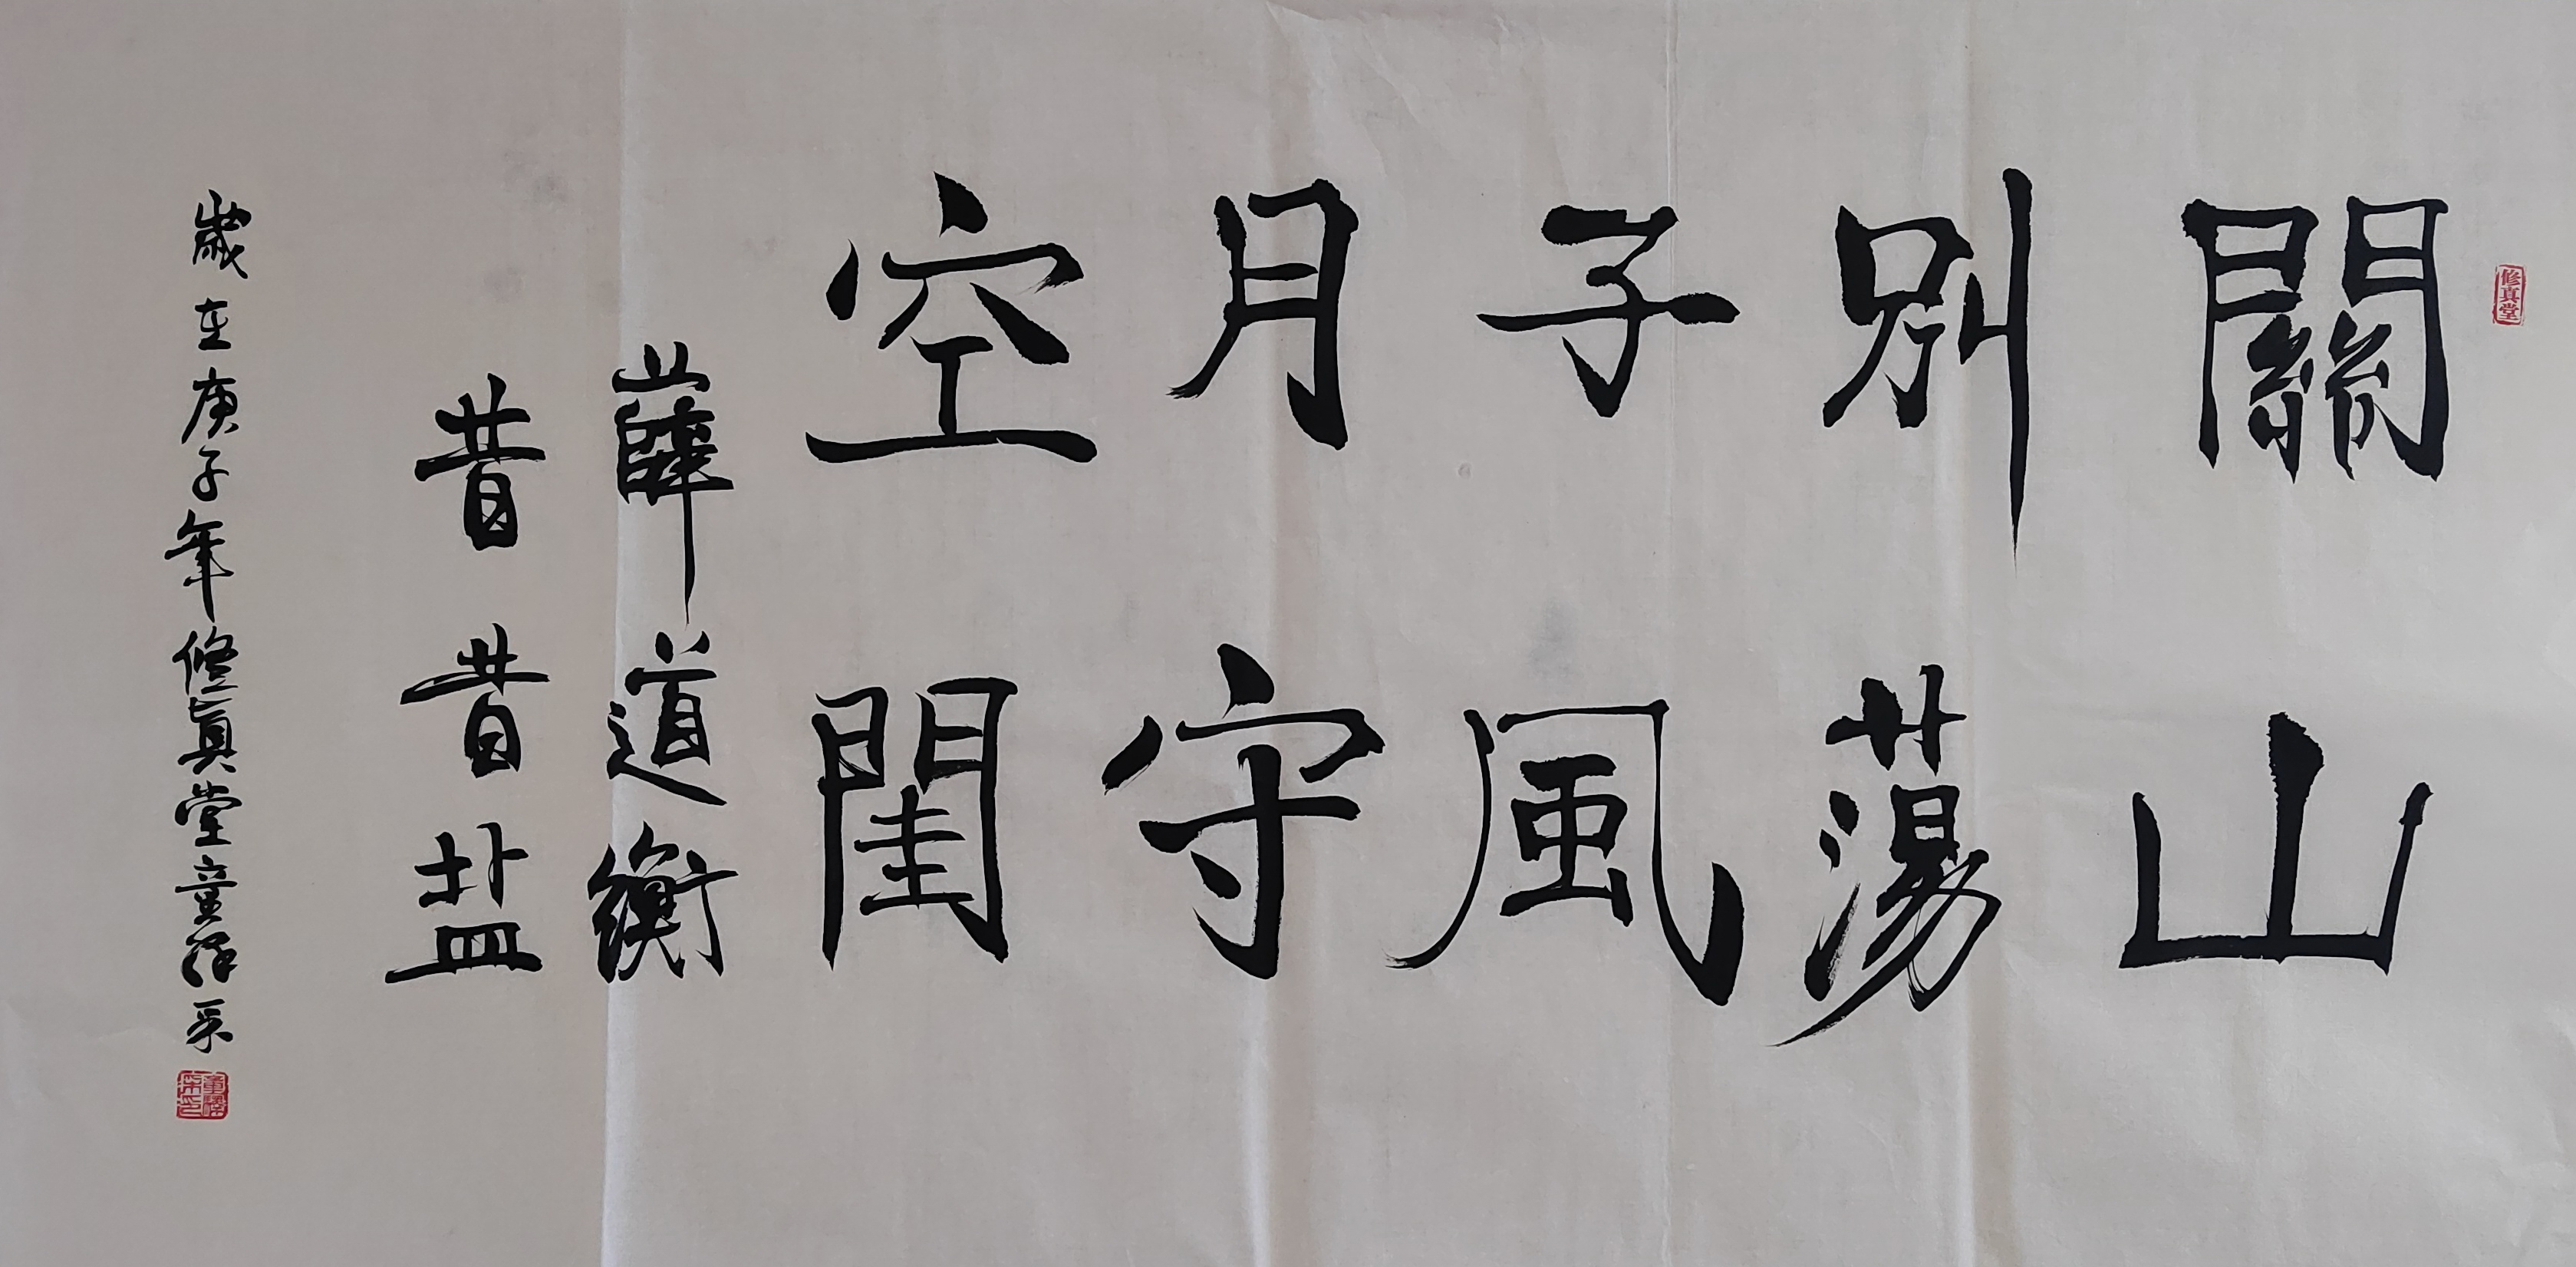 修真堂
關山
別蕩
子風
月守
空閨
薛道衡
昔昔盐
歲在庚子年修真堂童澤采